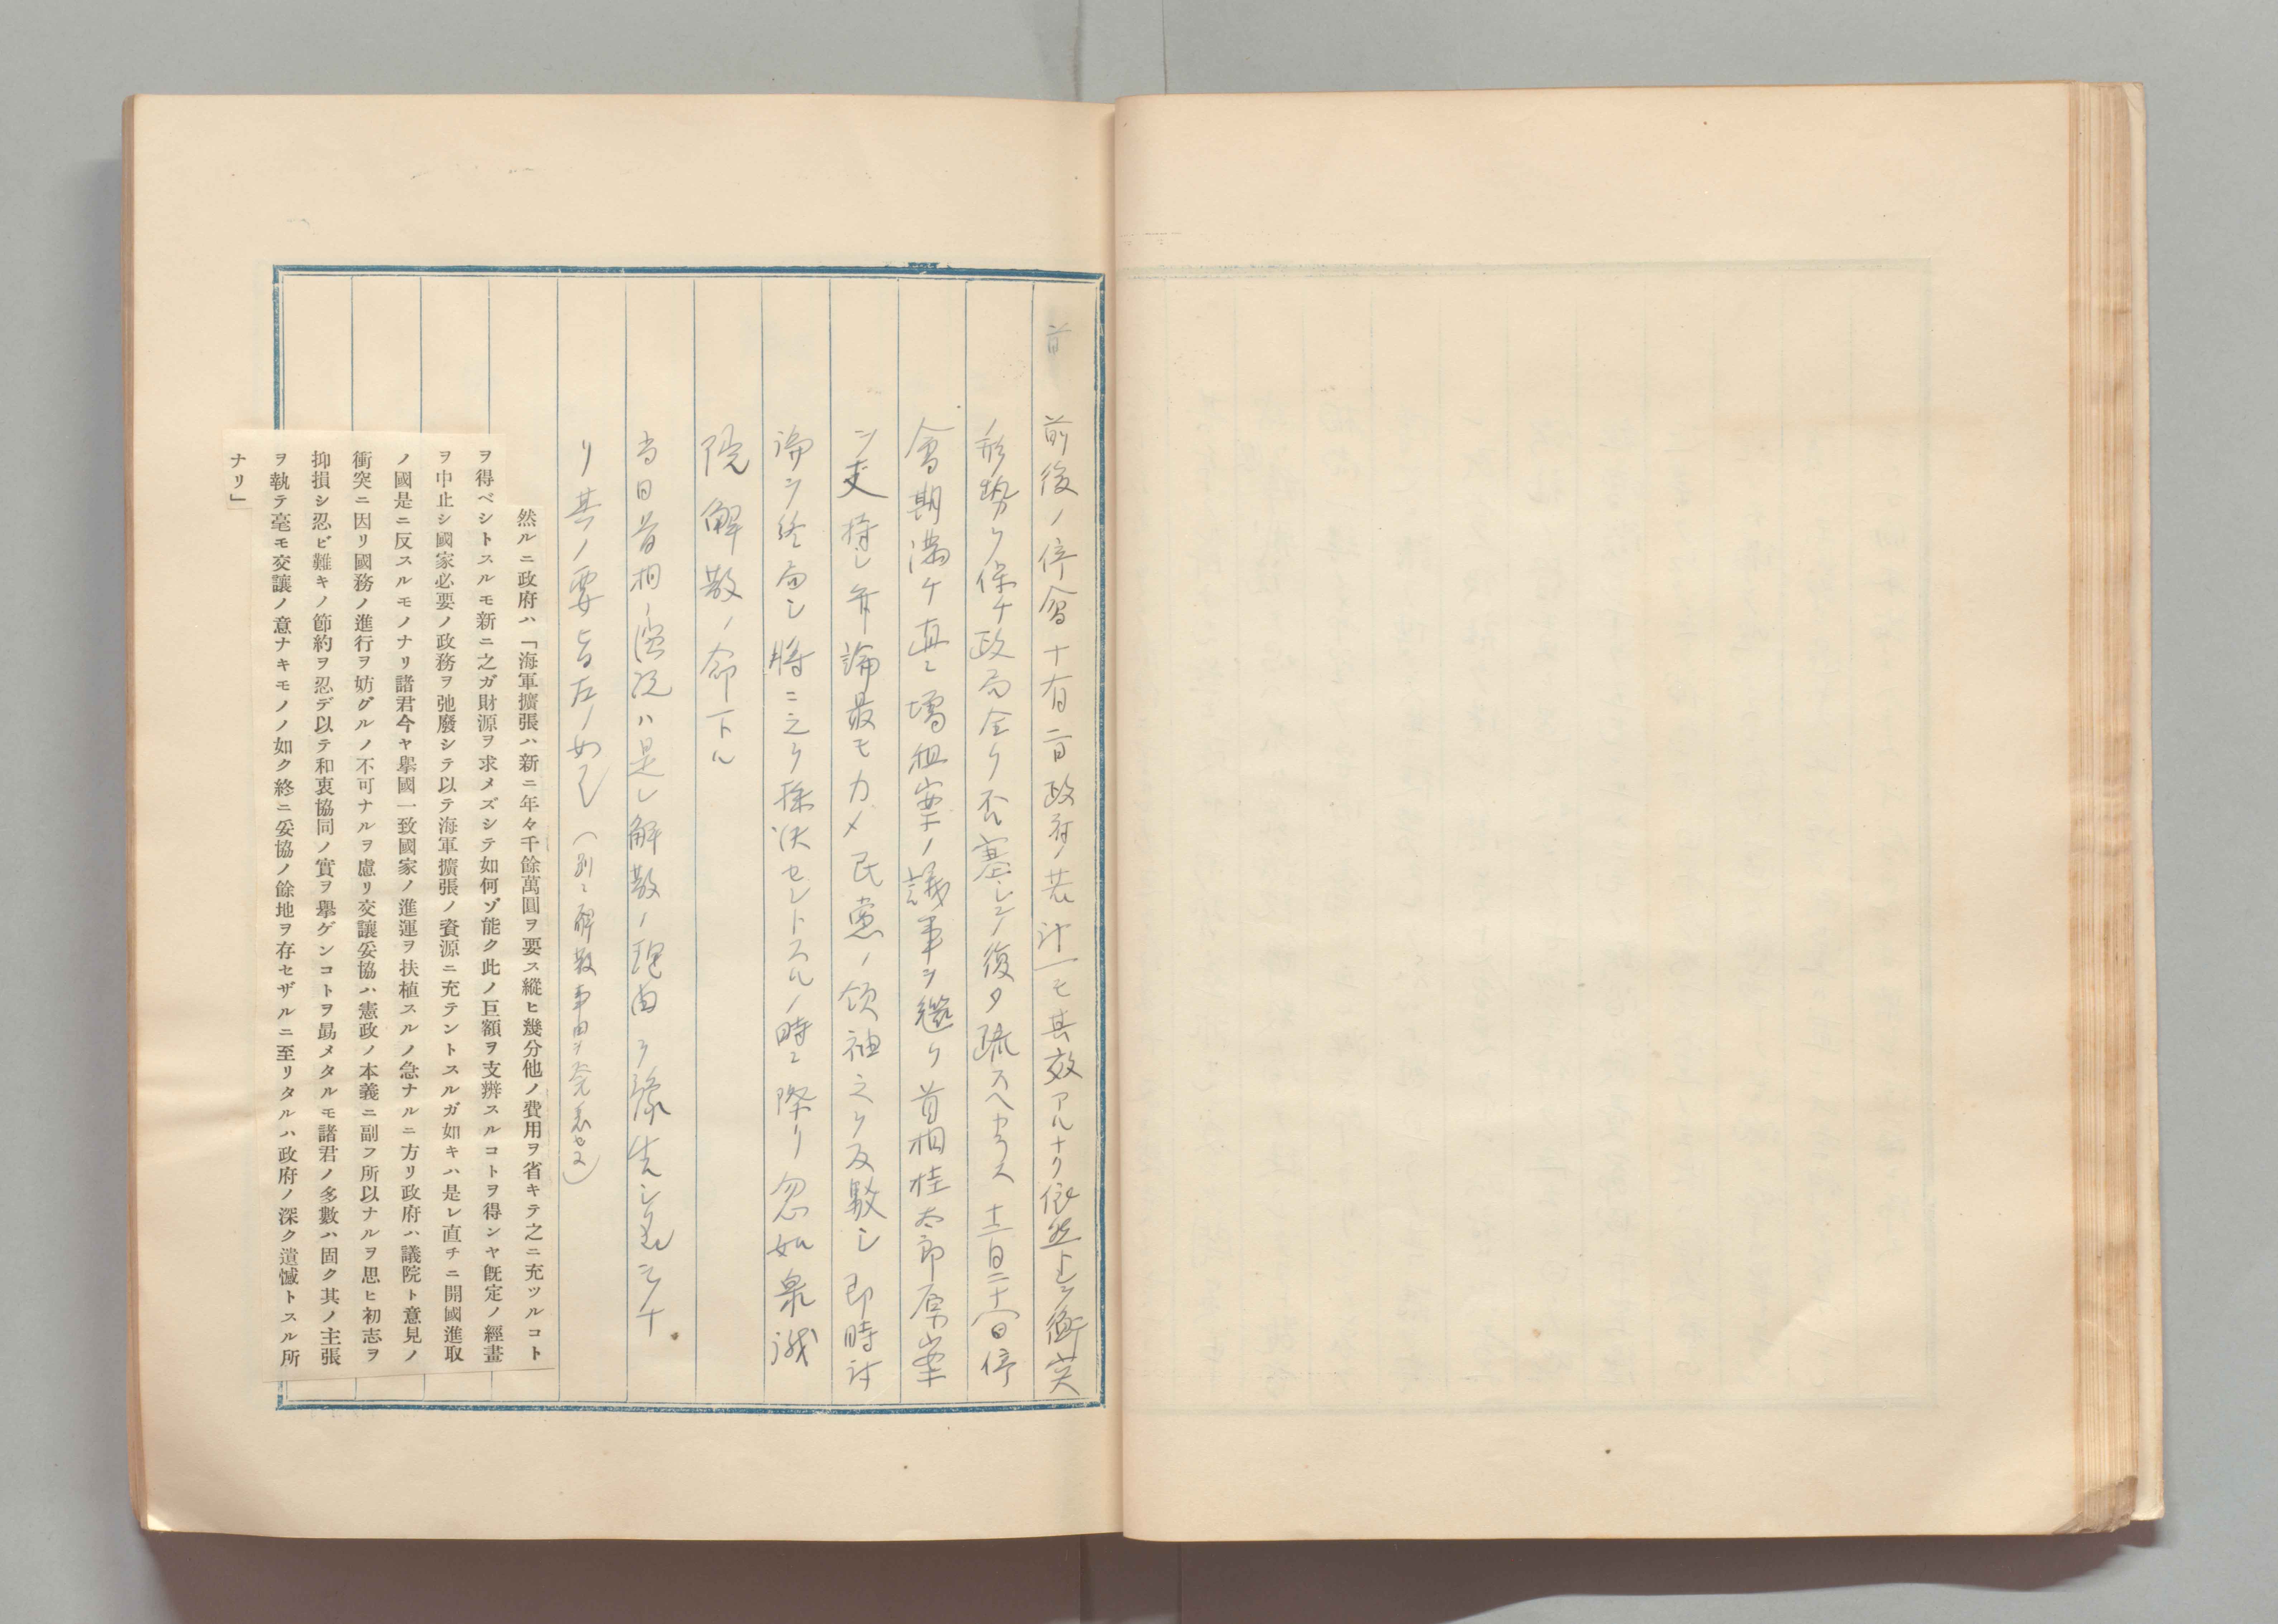 前
前後ノ停會十有二日政府ノ苦計一モ其效アルナク依然トシテ衝突
ノ形勢ヲ保チ政局全ク否塞シテ復タ疏スヘカラス十二月二十八日停
會期満チ直ニ増租案ノ議事ヲ繼ク首相桂太郎原案
ヲ支持シ弁論最モ力メ民黨ノ領袖之ヲ反駁シ即時討
論ヲ終局シ将ニ之ヲ採決セントスルノ時ニ際リ忽如衆議
院解散ノ命下ル
当日首相ノ演説ハ是レ解散ノ理由ヲ豫告シタルモノナ
リ其ノ要旨左ノ如シ（別ニ解散事由ヲ発表セス）
然ルニ政府ハ「海軍擴張ハ新ニ年々千餘萬圓ヲ要ス縱ヒ幾分他ノ費用ヲ省キテ之ニ充ツルコト
ヲ得ベシトスルモ新ニ之ガ財源ヲ求メズシテ如何ゾ能ク此ノ巨額ヲ支辨スルコトヲ得ンヤ既定ノ經畫
ヲ中止シ國家必要ノ政務ヲ弛廢シテ以テ海軍擴張ノ資源ニ充テントスルガ如キハ是レ直チニ開國進取
ノ國是ニ反スルモノナリ諸君今ヤ擧國一致國家ノ進運ヲ扶植スルノ急ナルニ方リ政府ハ議院ト意見ノ
衝突ニ因リ國務ノ進行ヲ妨グルノ不可ナルヲ慮リ交讓妥協ハ憲政ノ本義ニ副フ所以ナルヲ思ヒ初志ヲ
抑損シ忍ビ難キノ節約ヲ忍デ以テ和衷協同ノ實ヲ擧ゲンコトヲ勗メタルモ諸君ノ多數ハ固ク其ノ主張
ヲ執テ毫モ交讓ノ意ナキモノノ如ク終ニ妥協ノ餘地ヲ存セザルニ至リタルハ政府ノ深ク遺憾トスル所
ナリ」